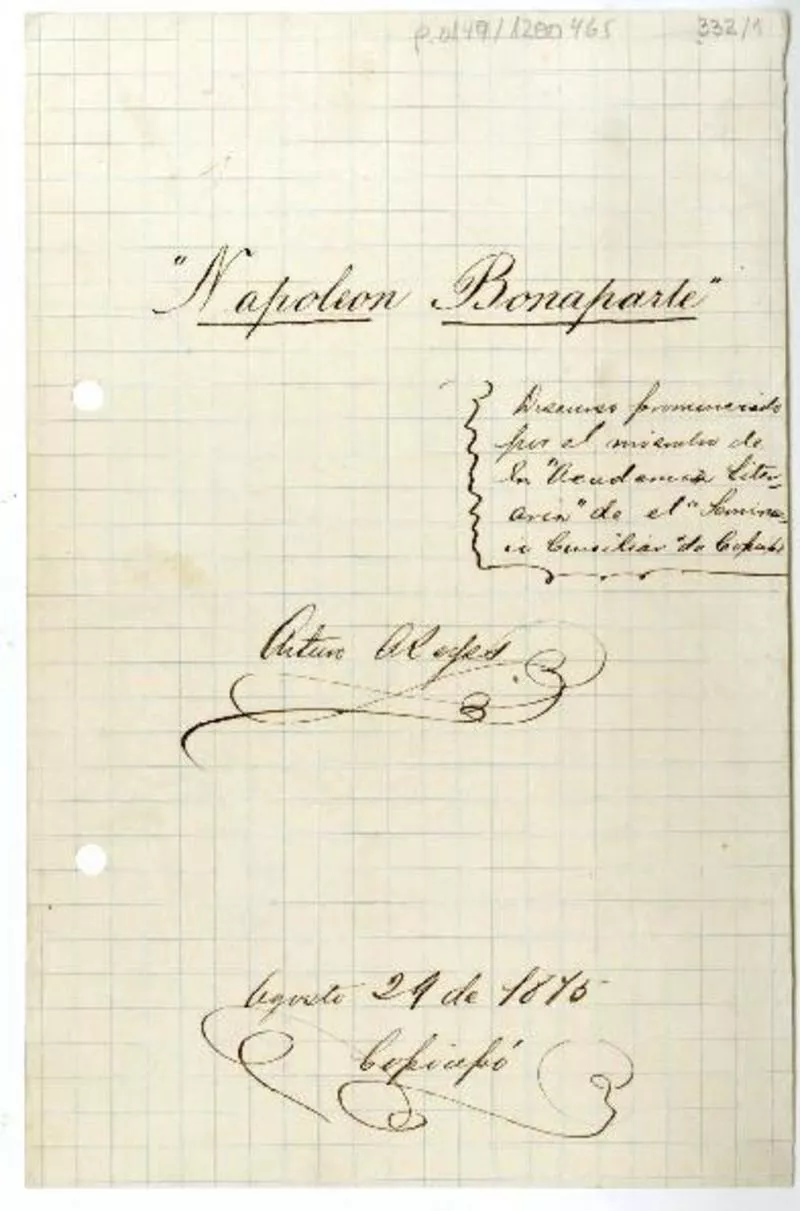 332/1
"Napoleon Bonaparte"
Discurso pronunciado
por el miembro de
la "Academia Liter-
aria" de el "Semina-
io Conciliar" de Copiapó
Arturo A Reyes.
Agosto 29 de 1875
Copiapó